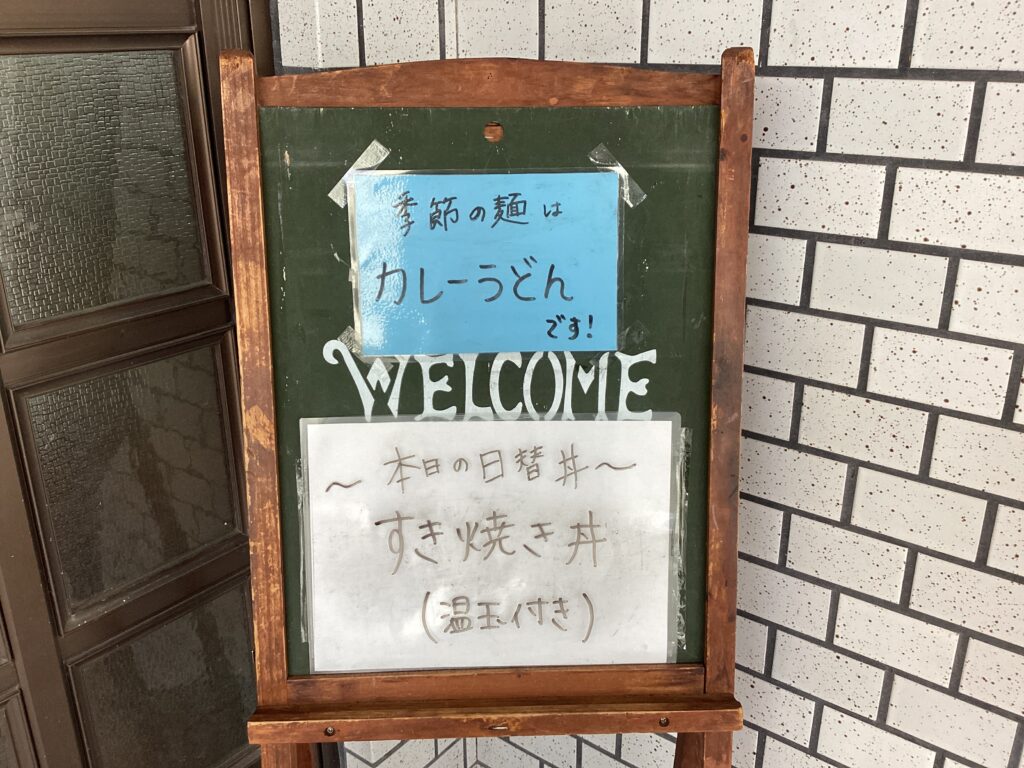 季節の麺は
カレーうどん
です!
WELCOME
～本日の日替丼～
すき焼き丼
(温玉付き)